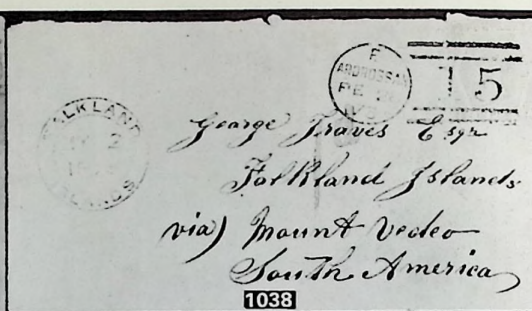 F
ARDROSSAN
FE 26
15
FALKLAND
2
ISLANDS
George Traves Esqr
Falkland Islands
via) Mount Vedeo
South America
1038